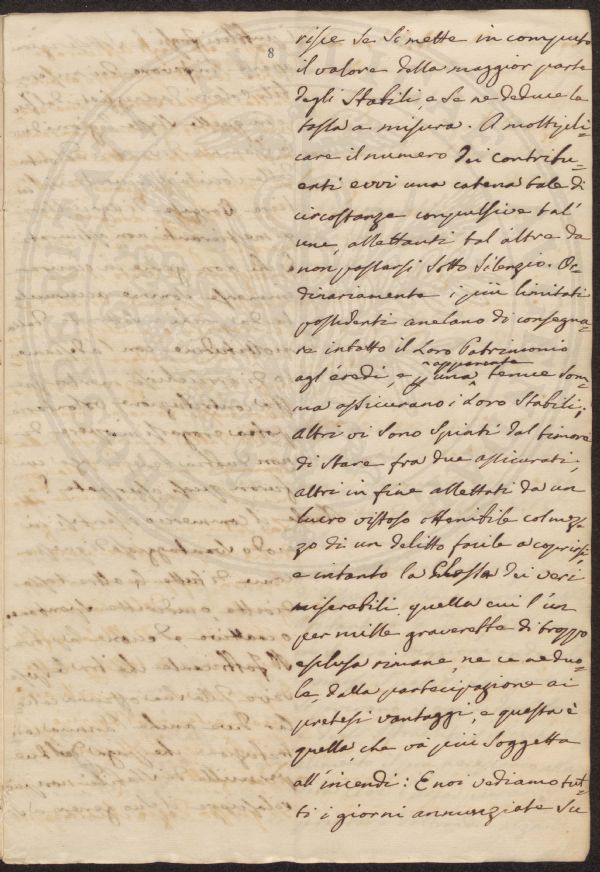 8
risie se si mette in computo
il valore della maggior parte
degli Stabili, e se ne deduce la
tassa a misura. A moltipli=
care il numero dei contribu=
enti evvi una catena tale di
circostanze compulsive tal'
une, allettanti tal'altre da
non passarsi sotto silenzio. Or=
dinariamente i più limitati
possidenti anelano di consegna=
re intatto il loro Patrimonio
agl'eredi, e p una apparente tenue som=
ma assicurano i loro Stabili;
altri vi sono spinti dal timore
di stare fra due assicurati;
altri in fine allettati da un
lucro vistoso ottenibile col mez=
zo di un delitto facile a coprirsi;
e intanto la Classe dei veri
miserabili, quella cui l'un
per mille graverebbe di troppo
esclusa rimane, ne ce ne duo=
le, dalla partecipazione ai
pretesi vantaggi, e questa è
quella, che va più soggetta
all'incendi: E noi vediamo tut=
ti i giorni annunziate su